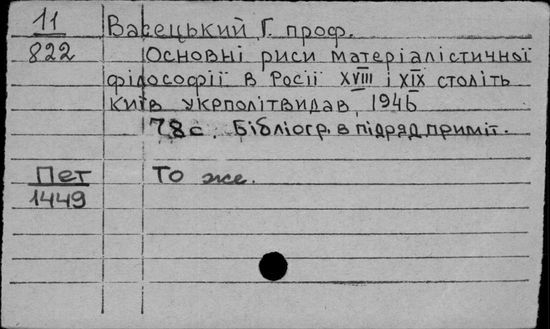 11 Васецький Г. проф.
822 Основні риси матеріалістичної
філософії в Росії XVIII і XIX століть
Київ Укрполітвидав, 1946
78 с. Бібліогр. в підряд. приміт.
Пет То же.
1449